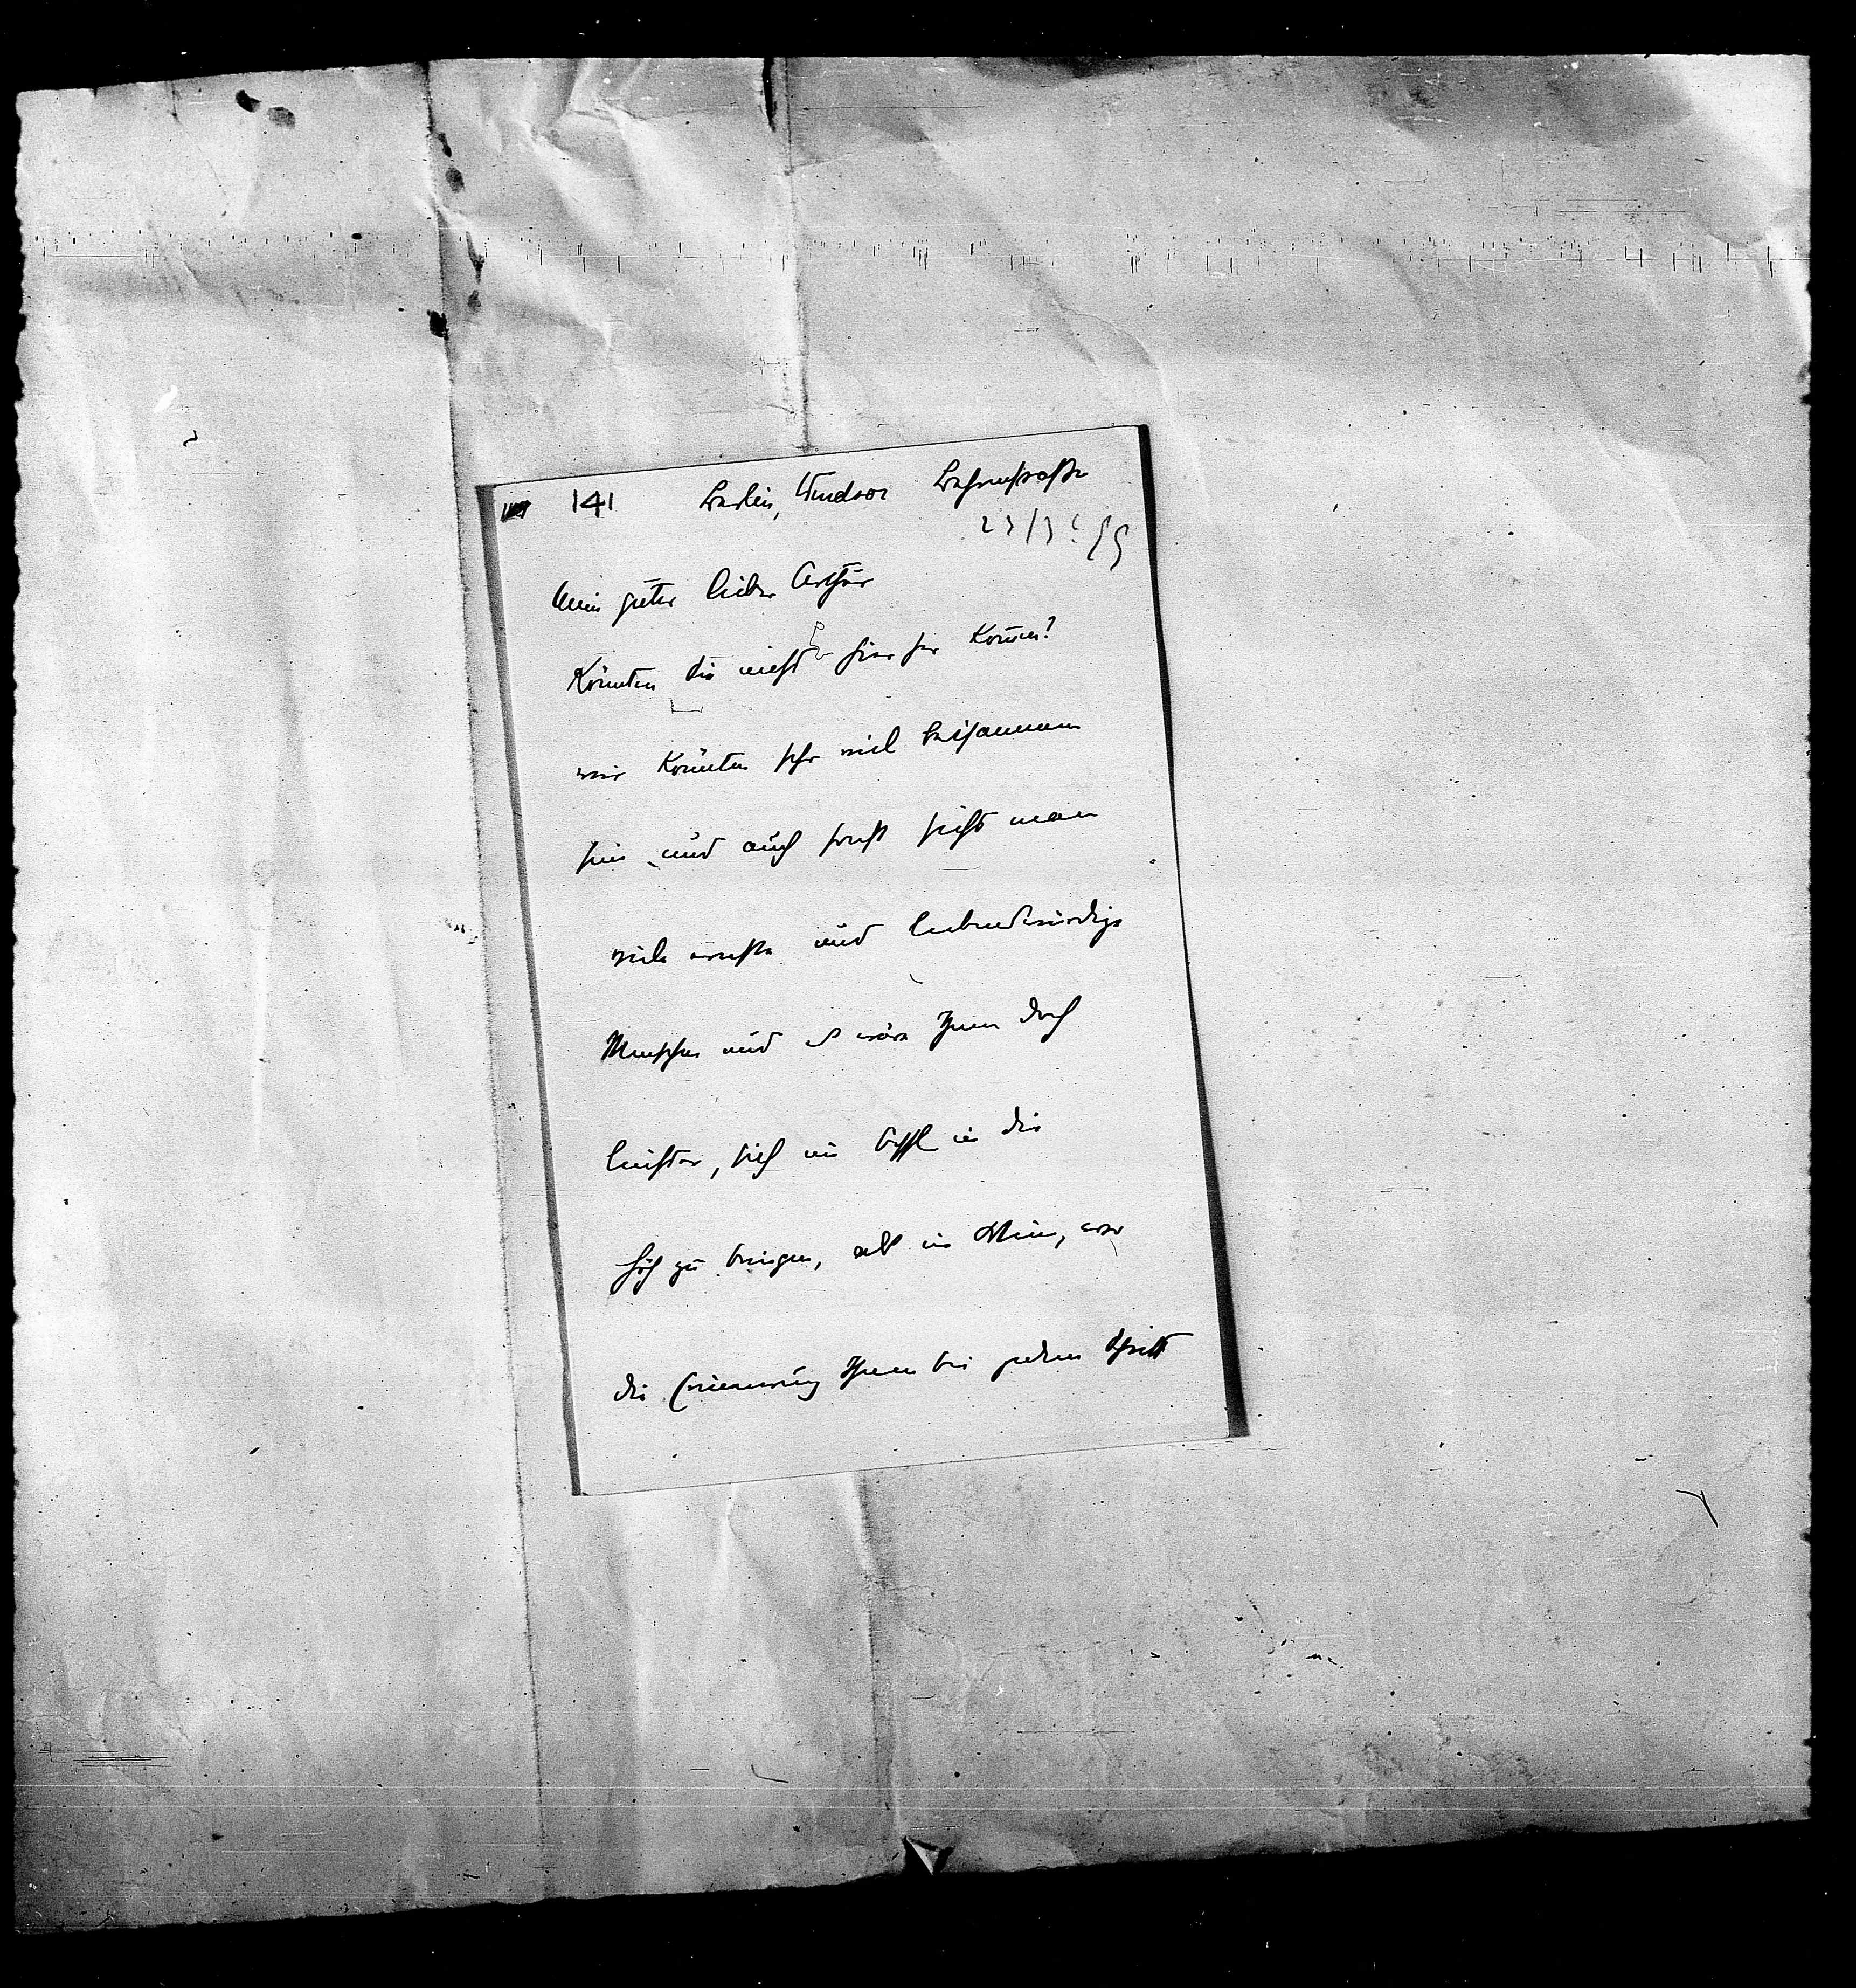 141 Berlin, Windsor Behrenstraße
23/3 99
Mein guter lieber Arthur
Könnten Sie nicht hier her kommen?
wir könnten sehr viel beisammen
sein und auch sonst sieht man
viele ernste und liebenswürdige
Menschen und es wäre Ihnen doch
leichter, sich ein bissl in die
Höh zu bringen, als in Wien, wo
die Erinnerung Ihnen bei jedem Schritt